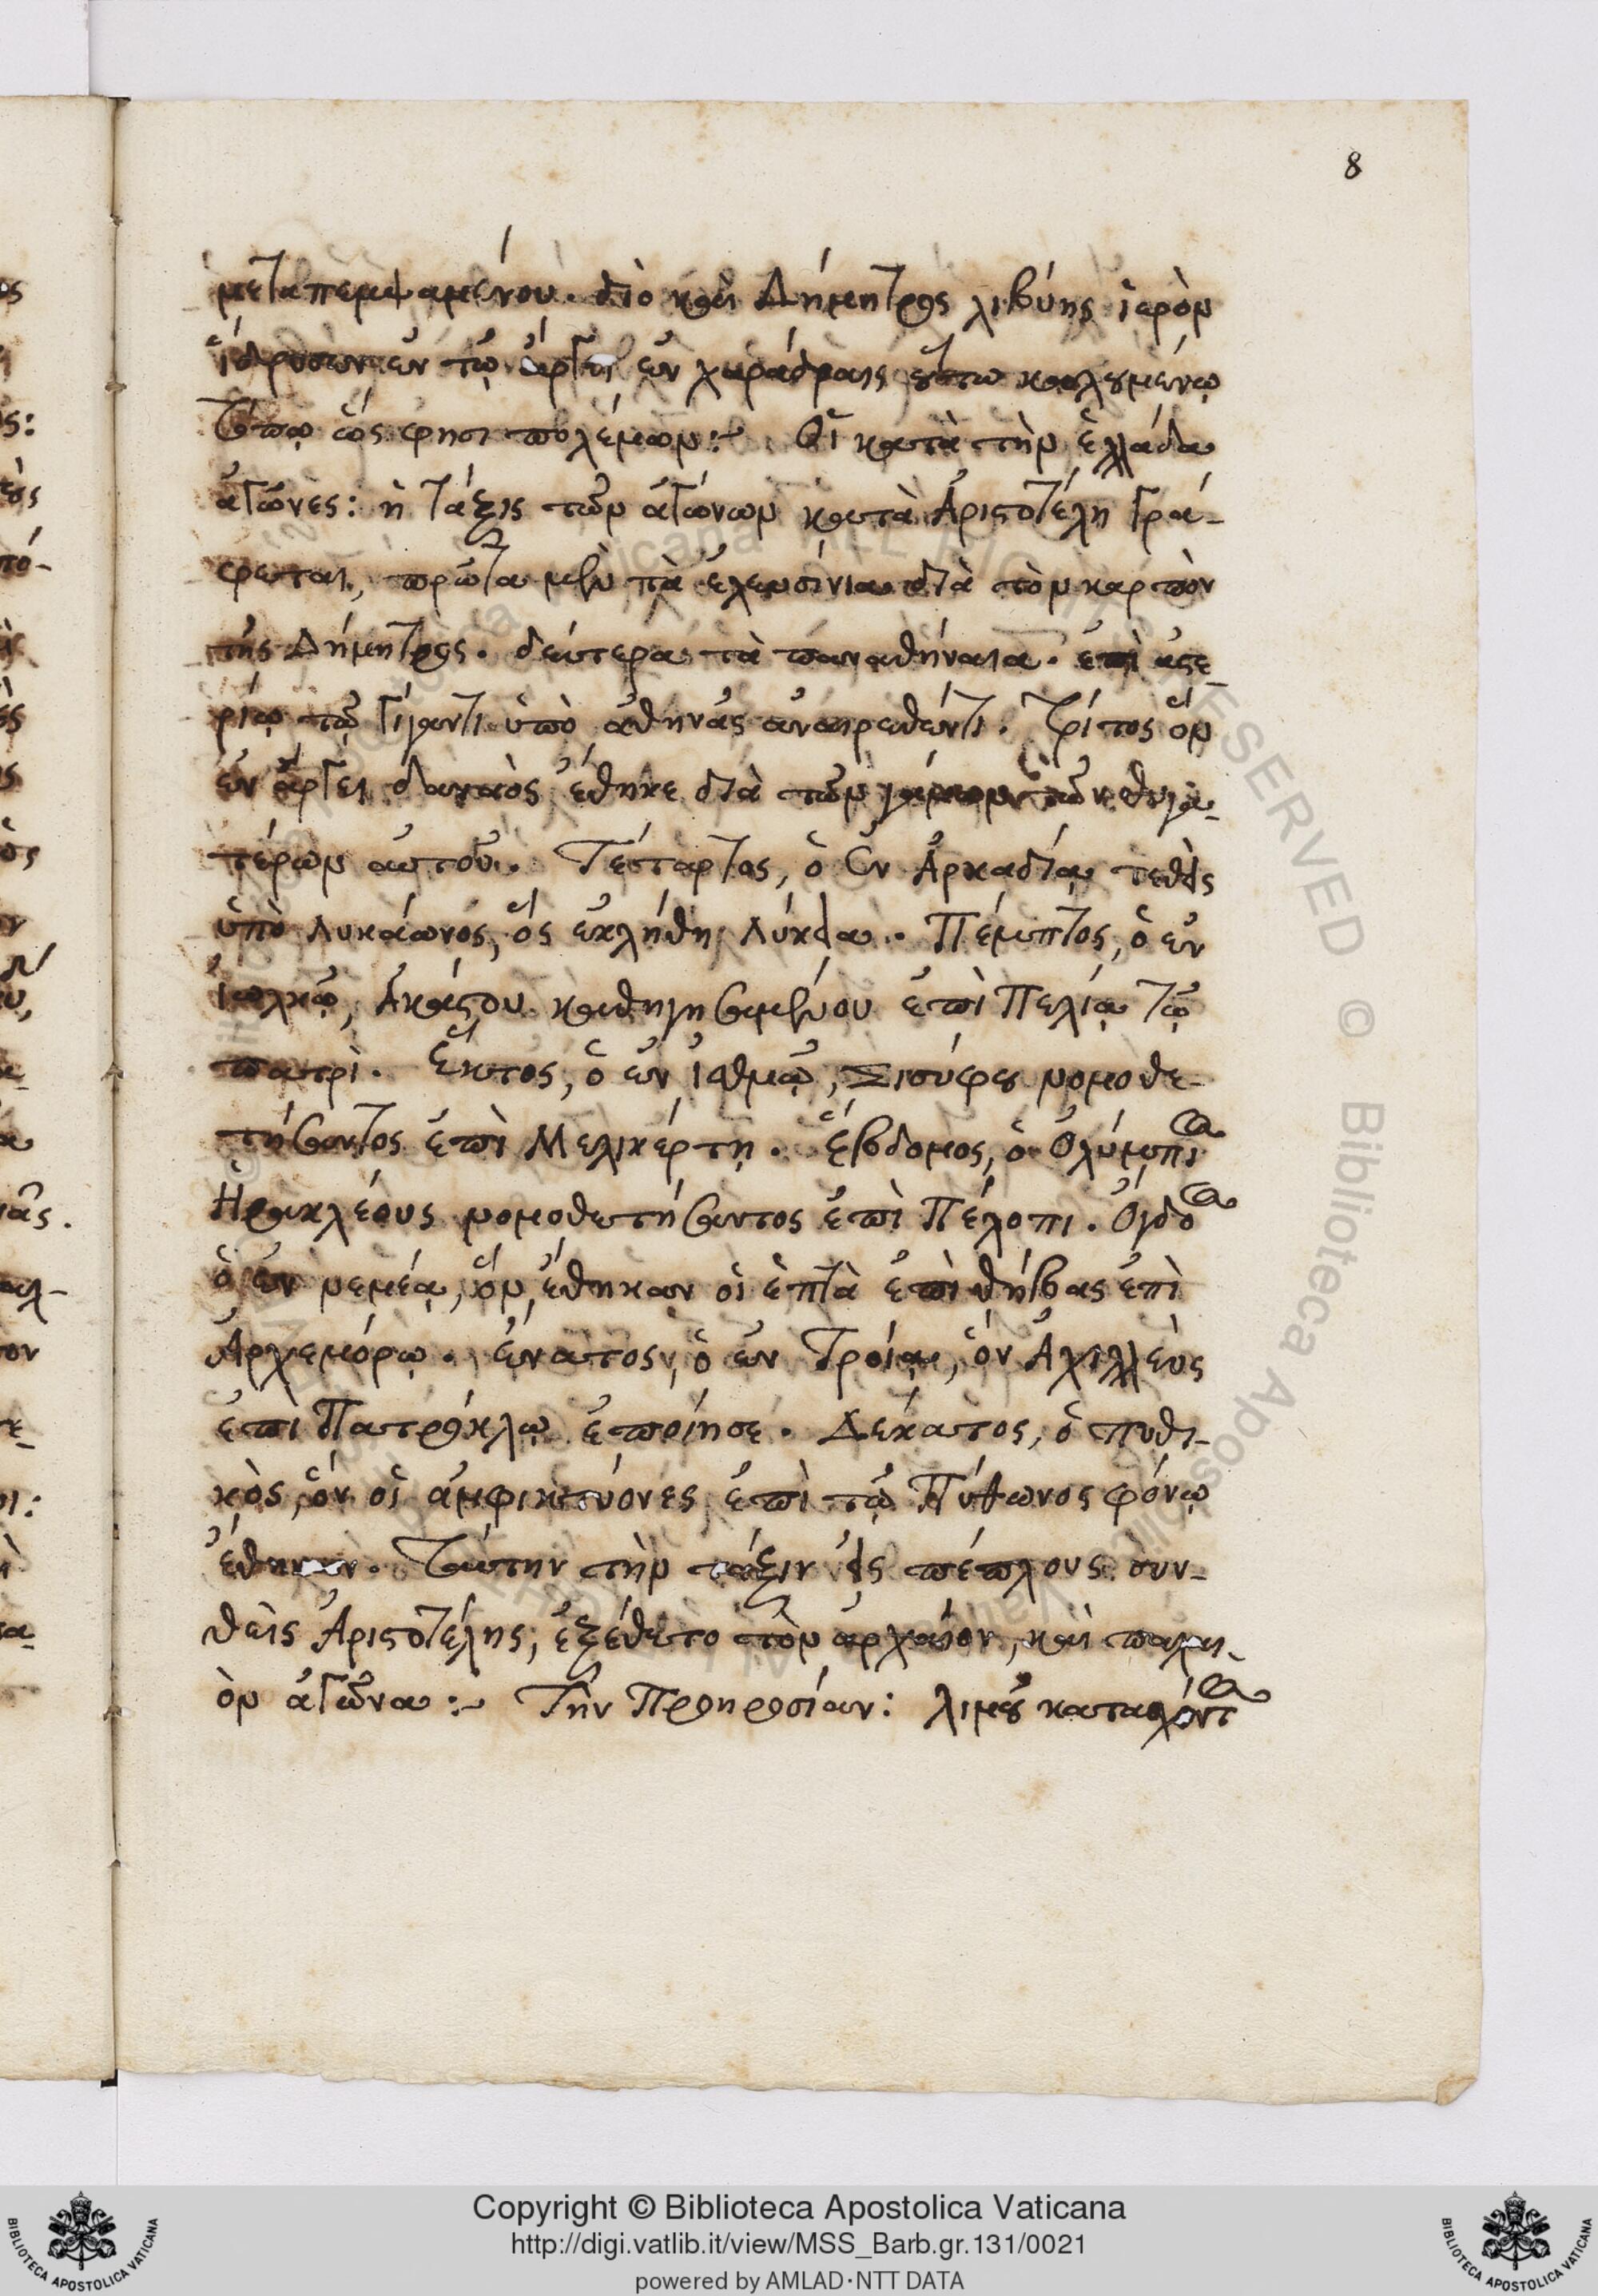 8
μεταπεμψαμένου. διὸ καὶ Δήμητρος λιβύης ἱερὸν
ἱδρύσαν ἐν τῷ ἄργει ἐν χαράδραις οὕτω καλουμένῳ
τόπῳ ὥς φησι πολέμων :~ Οἱ κατὰ τὴν ἑλλάδα
ἀγῶνες: ἡ τάξις τῶν ἀγώνων κατὰ Ἀριστοτέλη γρά-
φεται, πρῶτα μὲν τὰ ἐλευσίνια διὰ τὸν καρπὸν
τῆς Δήμητρος. δεύτερα τὰ παναθήναια. ἐπὶ ἀστε-
ρίῳ τῷ γίγαντι ὑπὸ ἀθηνᾶς ἀναιρεθέντι. Τρίτος ὃν
ἐν ἄργει δαναὸς ἔθηκε διὰ τὸν γάμον τῶν θυγα-
τέρων αὐτοῦ. Τέταρτος, ὁ ἐν Ἀρκαδίᾳ τεθεὶς
ὑπὸ Λυκάωνος, ὃς ἐκλήθη Λύκαια. Πέμπτος, ὁ ἐν
ἰωλκῷ, Ἀκάστου καθηγησαμένου ἐπὶ Πελίᾳ τῷ
πατρὶ. Ἕκτος, ὁ ἐν ἰσθμῷ, Σισύφου νομοθε-
τήσαντος ἐπὶ Μελικέρτῃ. Ἕβδομος, ὁ Ὀλύμπι
Ἡρακλέους νομοθετήσαντος ἐπὶ Πέλοπι. Ὄγδο
ὁ ἐν νεμέᾳ, ὃν ἔθηκαν οἱ ἑπτὰ ἐπὶ θήβας ἐπὶ
Ἀρχεμόρῳ. ἔννατος, ὁ ἐν Τροίᾳ, ὃν Ἀχιλλεὺς
ἐπὶ Πατρόκλῳ ἐποίησε. Δέκατος, ὁ πυθι-
κὸς, ὃν οἱ ἀμφικτύονες ἐπὶ τῷ Πύθωνος φόνῳ
ἔθηκαν. Ταύτην τὴν τάξιν εἰς πέπλους συν-
θεὶς Ἀριστοτέλης, ἐξέθετο τὸν ἀρχαῖον, καὶ παλαι-
ὸν ἀγῶνα :~ Τὴν Προηροσίαν: λιμοῦ κατασχόντ
Copyright © Biblioteca Apostolica Vaticana
http://digi.vatlib.it/view/MSS_Barb.gr.131/0021
powered by AMLAD·NTT DATA